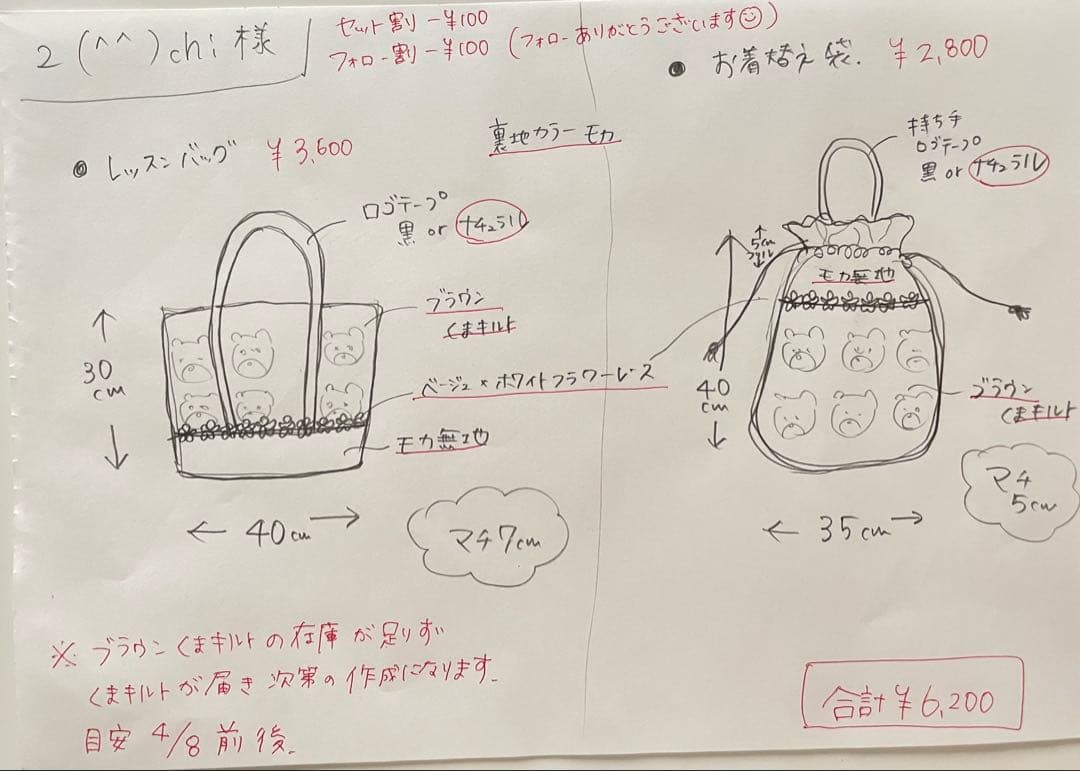 2 (^^)chi 様
セット割り -¥100
フォロー割り -¥100 (フォローありがとうございます☺)
• お着替え袋. ¥2,800
裏地カラー モカ
• レッスンバッグ ¥3,600
ロゴテープ
黒 or ナチュラル
ブラウン
くまキルト
ベージュ×ホワイトフラワーレース
モカ無地
30
cm
← 40cm →
マチ7cm
持ち手
ロゴテープ
黒 or ナチュラル
5cm
フリル
モカ無地
40
cm
ブラウン
くまキルト
マチ
5cm
← 35cm →
※ ブラウンくまキルトの在庫が足りず
くまキルトが届き次第の作成になります.
目安 4/8 前後.
合計 ¥6,200